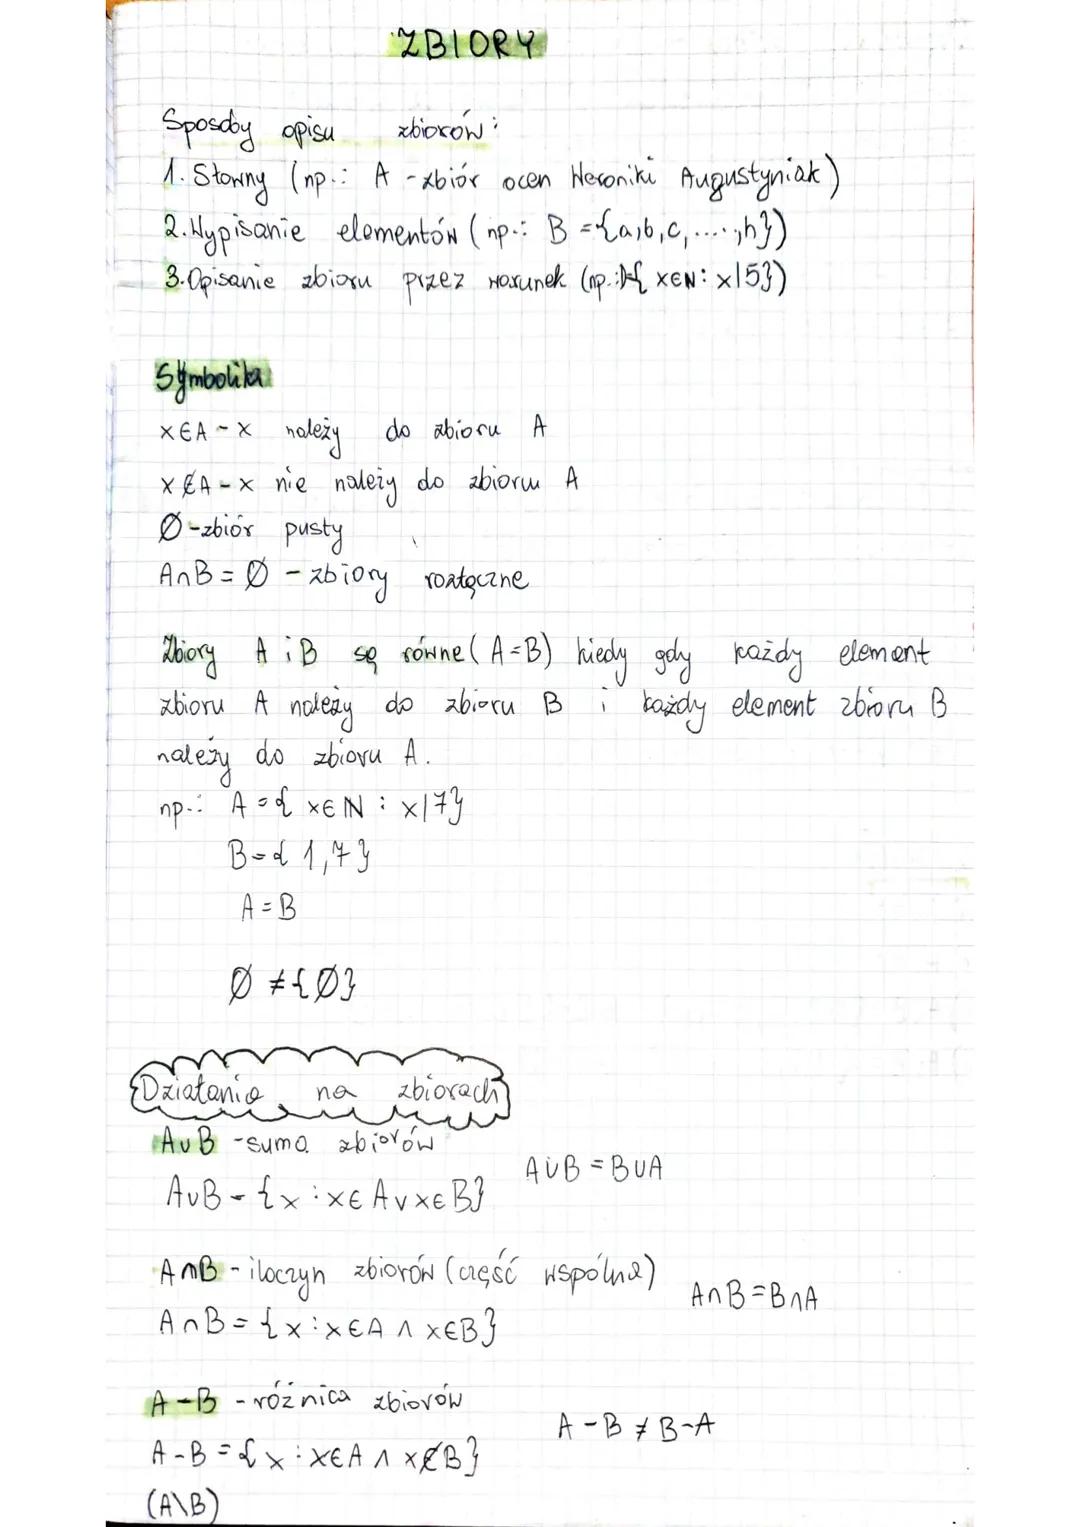 ZBIORY
Sposoby opisu zbiorów:
1. Słowny (np.: A - zbiór ocen Weroniki Augustyniak)
2. Wypisanie elementów (np.: B = {a,b,c,....,h})
3. Opisanie zbioru przez warunek (np.: { x∈N: x|5})
Symbolika
x∈A - x należy do zbioru A
x∉A - x nie należy do zbioru A
Ø - zbiór pusty
A∩B = Ø - zbiory rozłączne
Zbiory A i B są równe (A=B) kiedy gdy każdy element
zbioru A należy do zbioru B i każdy element zbioru B
należy do zbioru A.
np.: A = { x∈N : x|7}
B = { 1,7 }
A = B
Ø ≠ {Ø}
Działania na zbiorach
A∪B - suma zbiorów
A∪B = B∪A
A∪B = {x : x∈A ∨ x∈B}
A∩B - iloczyn zbiorów (część wspólna)
A∩B = B∩A
A∩B = {x : x∈A ∧ x∈B}
A-B - różnica zbiorów
A-B ≠ B-A
A-B = {x : x∈A ∧ x∉B}
(A\B)